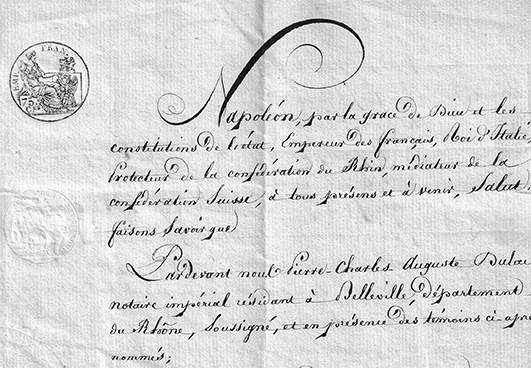 EMP. FRAN.
75 C
Napoléon, par la grace de Dieu et les
constitutions de l'état, Empereur des français, Roi d'Italie,
Protecteur de la confédération du Rhin, médiateur de la
confédération Suisse, à tous présens et à venir, Salut
faisons Savoir que
Pardevant nous Pierre-Charles Auguste Dulac
notaire impérial résidant à Belleville, département
du Rhône, Soussigné, et en présence des témoins ci-après
nommés;